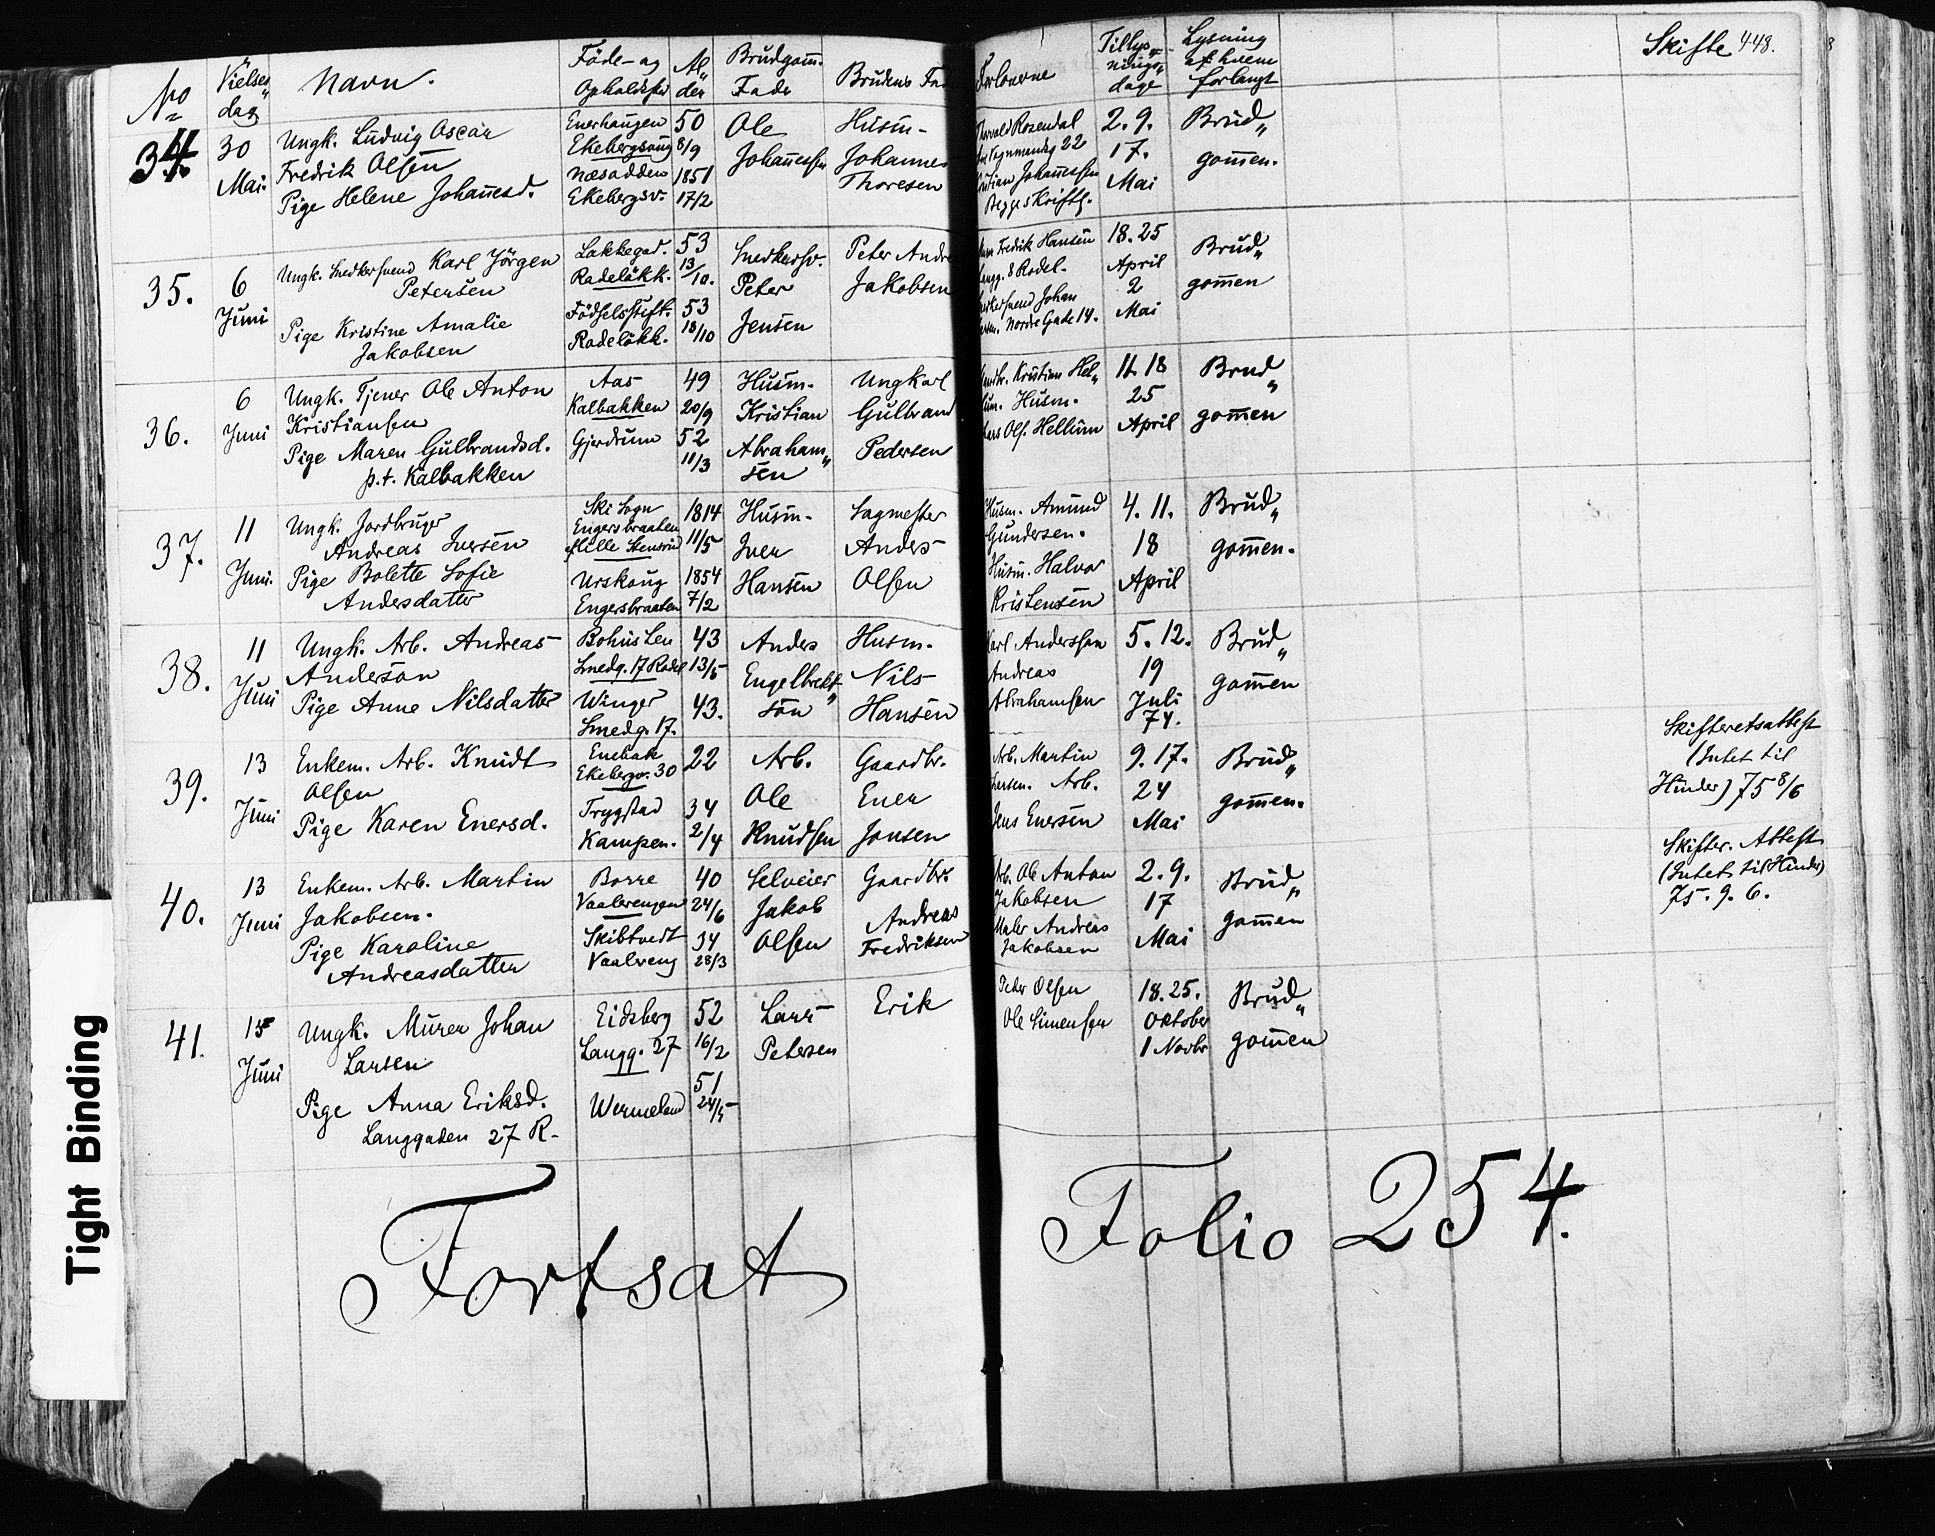 No
Vielses„
dag
Navn.
Føde- og
Opholdsted
Al„
der
Brudgom̄.
Fader
Brudens Fa
Forlovere
Tillys„
nings„
dage
Lysning
af hvem
forlangt
Skifte 448.
34.
30
Mai.
Ungk. Ludvig Oscar
Fredrik Olsen
Pige Helene Johañesd.
Enerhaugen
Ekebergsoug
Næsodden
Ekebergsv.
50
8/9
1851
17/2
Ole
Johañessen
Husm-
Johannes
Thoresen
Rosendal
22
Johañessen
Begge Skriftl.
2. 9.
17.
Mai
Brud„
gom̄en.
35.
6
Juni
Ungk. Snedkersvend Karl Jörgen
Petersen
Pige Kristine Amalie
Jakobsen
Lakkegad.
Rodelökk.
Födselsstift.
Rodelökk.
53
13/10.
53
18/10
Snedkersv.
Peter
Jensen
Peter Andre
Jakobsen
Fredik Hansen
langg. 8 Rodel.
Johan
Nordre Gade 14.
18. 25
April
2
Mai
Brud„
gom̄en
36.
6
Juni
Ungk. Tjener Ole Anton
Kristiansen
Pige Maren Gulbrandsd.
p.t. Kalbakken
Aas
Kalbakken
Gjerdrum
49
20/9
52
11/3
Husm.
Kristian
Abraham„
sen
Ungkarl
Gulbrand
Pedersen
Kristian Hel„
lum. Husm.
Lars Ols. Hellum
11. 18
25
April
Brud„
gom̄en
37.
11
Juni.
Ungk. Jordbruger
Andreas Iversen
Pige Bolette Sofie
Andersdatter
Ski Sogn
Engersbraaten
Stensrud
Urskoug
Engersbraaten
1814
11/5
1854
7/2
Husm-
Iver
Hansen
Sagmester
Anders
Olsen
Husm. Amund
Gundersen.
Husm. Halvor
Kristensen
4. 11.
18
April
Brud„
gom̄en.
38.
11
Juni
Ungk. Arb. Andreas
Anderson
Pige Anne Nilsdatter
Bohuslen
Smedg. 17 Rodel
Winger
Smedg. 17.
43
13/5
43.
Anders
Engelbrekt„
son
Husm.
Nils
Hansen
Karl Anderssen
Andreas
Abrahamsen
5. 12.
19
Juli
74.
Brud„
gom̄en
39.
13
Juni
Enkem. Arb. Knudt
Olsen
Pige Karen Enersd.
Enebak
Ekebergv. 30
Trygstad
Kampen.
22
34
2/4
Arb.
Ole
Knudsen
Gaardbr.
Ener
Jonsen
Arb. Martin
Larsen. Arb.
Jens Enersen
9. 17.
24
Mai
Brud„
gom̄en.
Skifteretsattest
(Intet til
Hinder) 75 8/6
40.
13
Juni
Enkem. Arb. Martin
Jakobsen.
Pige Karoline
Andreasdatter
Borre
Vaalerengen
Skibtvedt
Vaalreng
40
24/6
34
28/3
Selveier
Jakob
Olsen
Gaardbr.
Andreas
Fredriksen
Arb. Ole Anton
Jakobsen
Maler Andreas
Jakobsen
2. 9.
17
Mai
Brud„
gom̄en
Skifter. Attest
(Intet til Hinder)
75. 9. 6.
41.
15
Juni
Ungk. Murer Johan
Larsen
Pige Anna Eriksd.
Langgaden 27 R-
Eidsberg
Langg. 27
Wermeland
52
16/2
51
24/5
Lars
Petersen
Erik
Peter Olsen
Ole Simensen
18. 25.
Oktober
1 Novbr
Brud„
gom̄en
Fortsat
Folio 254.
Tight Binding